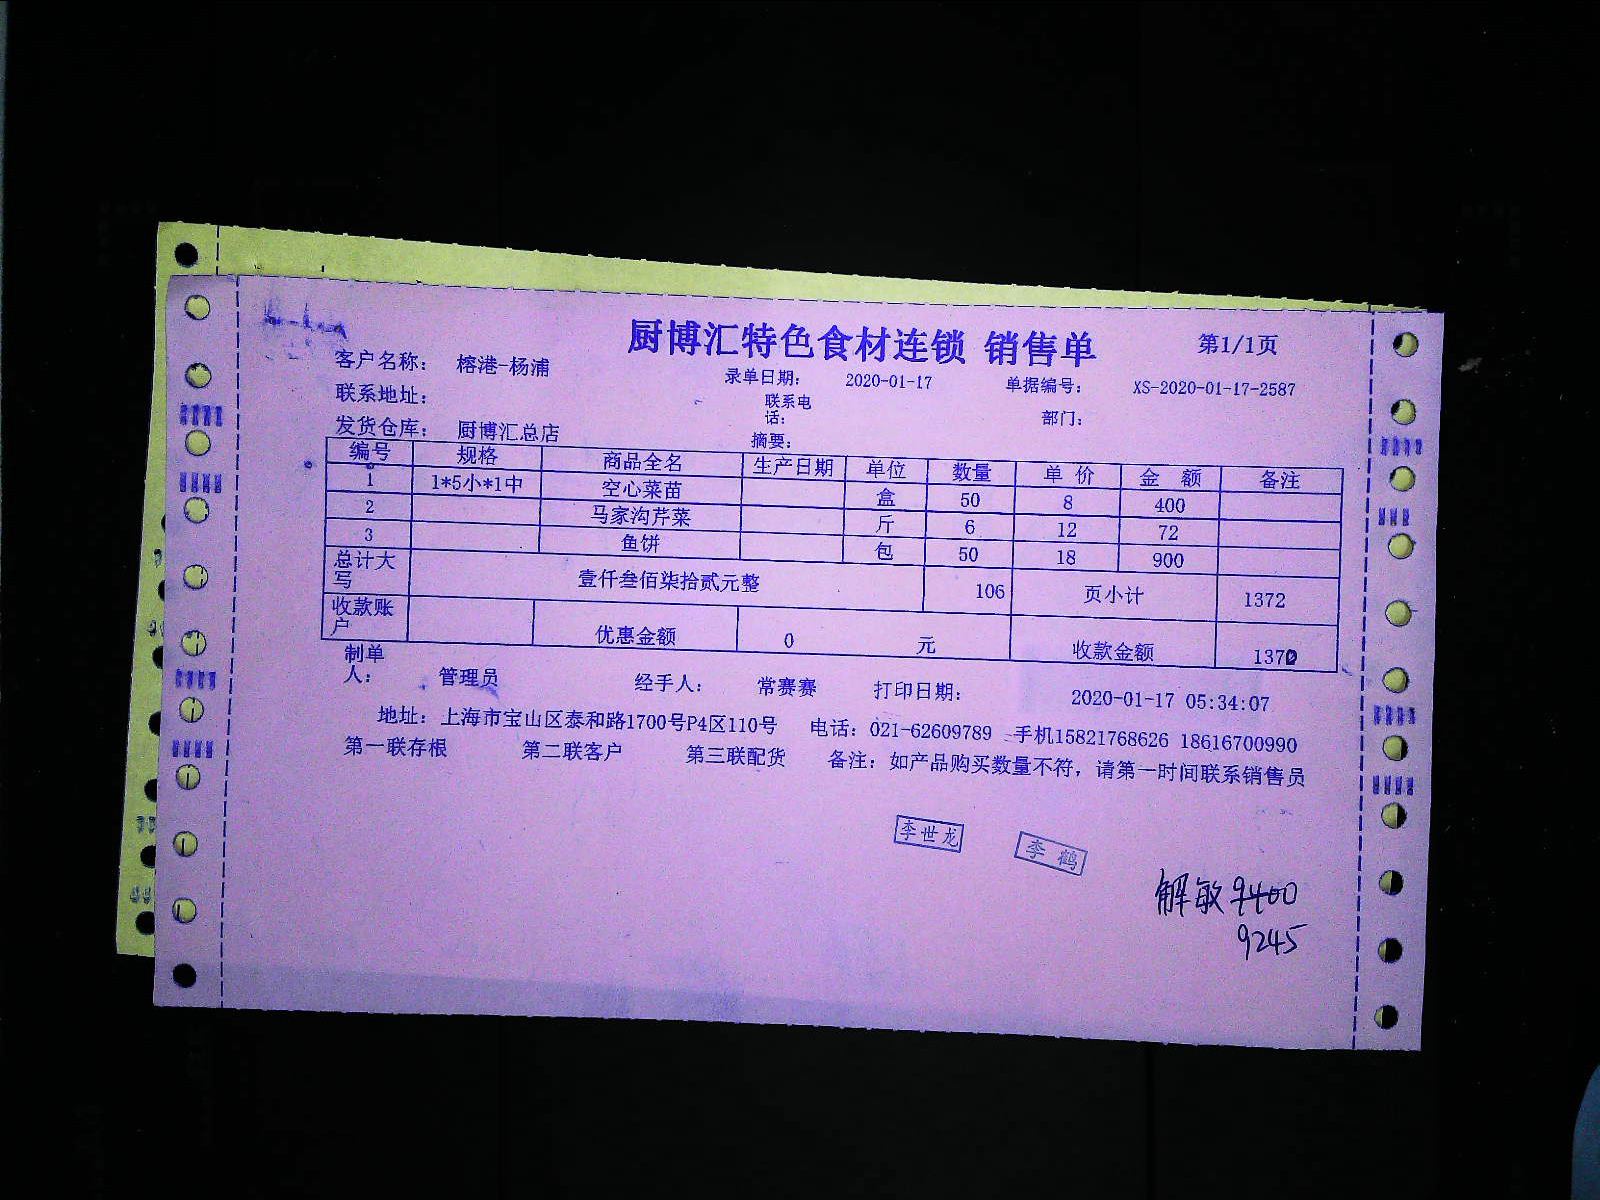 厨博汇特色食材连锁 销售单 第1/1页
客户名称： 榕港-杨浦 录单日期： 2020-01-17 单据编号： XS-2020-01-17-2587
联系地址： 联系电话： 部门：
发货仓库： 厨博汇总店 摘要：
编号 规格 商品全名 生产日期 单位 数量 单 价 金 额 备注
1 1*5小*1中 空心菜苗 盒 50 8 400
2 马家沟芹菜 斤 6 12 72
3 鱼饼 包 50 18 900
总计大写 壹仟叁佰柒拾贰元整 106 页小计 1372
收款账户 优惠金额 0 元 收款金额 1370
制单人： 管理员 经手人： 常赛赛 打印日期： 2020-01-17 05:34:07
地址：上海市宝山区泰和路1700号P4区110号 电话：021-62609789 手机15821768626 18616700990
第一联存根 第二联客户 第三联配货 备注：如产品购买数量不符，请第一时间联系销售员
李世龙 李鹤
解敏 9400
9245